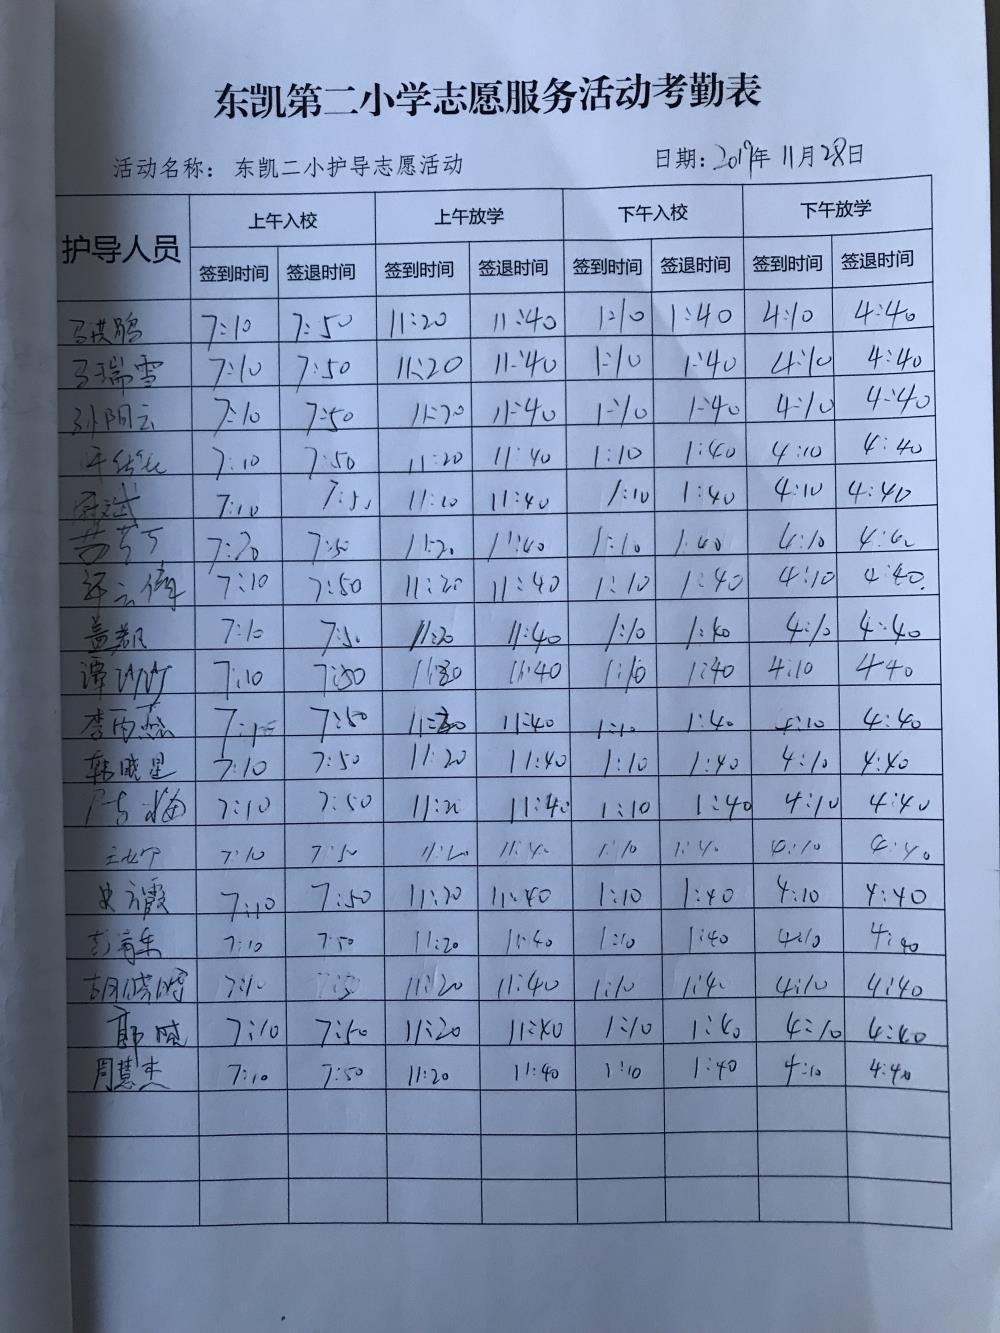 东凯第二小学志愿服务活动考勤表
活动名称：东凯二小护导志愿活动 日期：2019年11月28日
护导人员 上午入校 上午放学 下午入校 下午放学
签到时间 签退时间 签到时间 签退时间 签到时间 签退时间 签到时间 签退时间
7:10 7:50 11:20 11:40 1:10 1:40 4:10 4:40
马瑞雪 7:10 7:50 11:20 11:40 1:10 1:40 4:10 4:40
孙阳云 7:10 7:50 11:20 11:40 1:10 1:40 4:10 4:40
7:10 7:50 11:20 11:40 1:10 1:40 4:10 4:40
7:10 7:5 11:10 11:40 1:10 1:40 4:10 4:40
7:50 11:20 11:40 1:10 1:40 4:10
7:10 7:50 11:20 11:40 1:10 1:40 4:10 4:40
7:10 7:50 11:20 11:40 1:10 1:40 4:10 4:40
谭 7:10 7:50 11:40 1:10 1:40 4:10 4:40
李雨 7:50 11:40 1:10 1:40 4:10 4:40
韩晓星 7:10 7:50 11:20 11:40 1:10 1:40 4:10 4:40
海 7:10 7:50 11:20 11:40 1:10 1:40 4:10 4:40
7:10 7:50 11:20 11:40 1:10 1:40 4:10 4:40
史 霞 7:10 7:50 11:20 11:40 1:10 1:40 4:10 4:40
彭 7:10 7:50 11:20 11:40 1:10 1:40 4:10 4:40
胡 7:10 11:20 11:40 1:10 1:4 4:10 4:40
郭晓 7:10 7:50 11:20 11:40 1:10 1:40 4:10 4:40
周慧杰 7:10 7:50 11:20 11:40 1:10 1:40 4:10 4:40